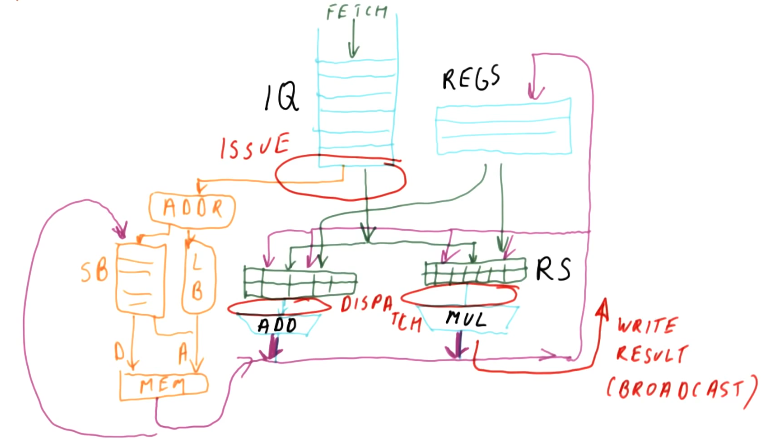 FETCH
IQ
REGS
ISSUE
ADDR
SB
LB
RS
DISPA
TCH
ADD
MUL
D
A
MEM
WRITE
RESULT
(BROADCAST)